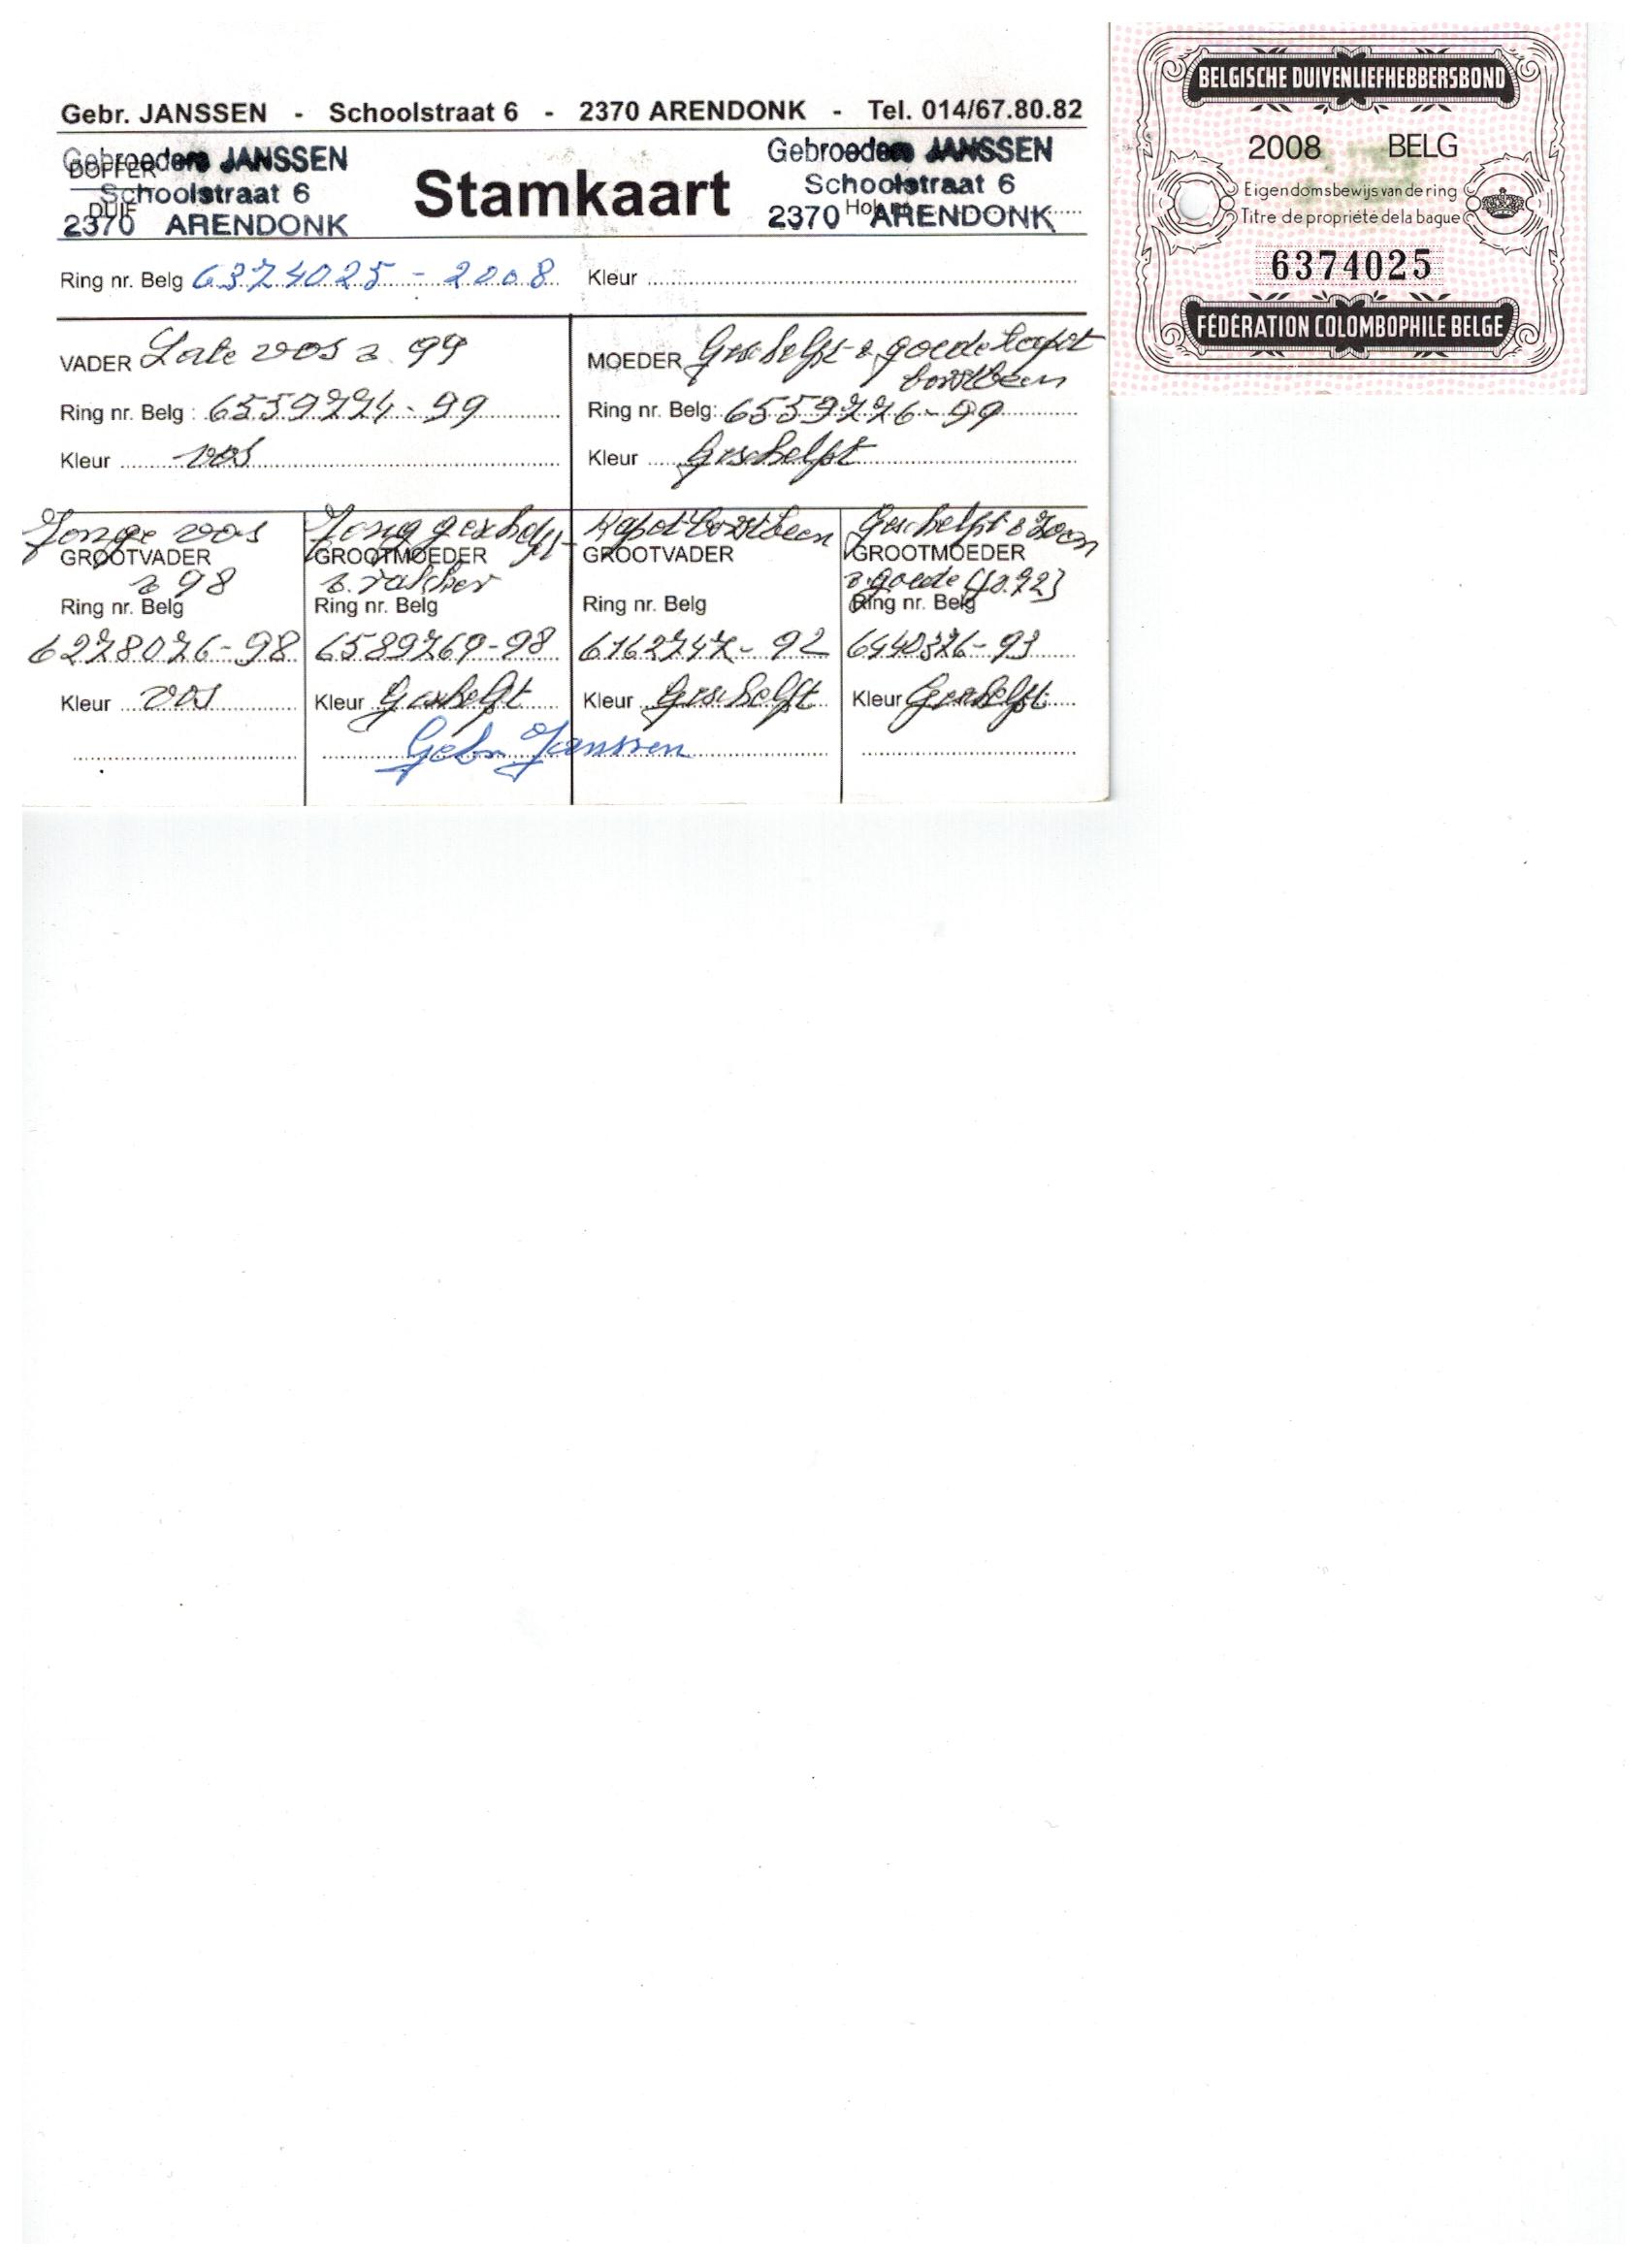 Gebr. JANSSEN - Schoolstraat 6 - 2370 ARENDONK - Tel. 014/67.80.82
DOFFER
DUIF
Gebroeders JANSSEN
Schoolstraat 6
2370 ARENDONK
Stamkaart
Gebroeders JANSSEN
Schoolstraat 6
2370 ARENDONK
Ring nr. Belg 6374025 - 2008 Kleur
VADER Late vos v. 99
Ring nr. Belg : 6559774 - 99
Kleur vos
MOEDER Geschelpt v. goede kapot
borstbeen
Ring nr. Belg: 6559776 - 99
Kleur Geschelpt
Jonge vos
GROOTVADER
v 98
Ring nr. Belg
6278076-98
Kleur vos
Jong geschelpt
GROOTMOEDER
v.
Ring nr. Belg
6589769-98
Kleur Geschelpt
Kapot borstbeen
GROOTVADER
Ring nr. Belg
6162747 - 92
Kleur Geschelpt
Geschelpt v Zoon
GROOTMOEDER
v. goede
Ring nr. Belg
6440376-93
Kleur Geschelpt
Gebr Janssen
BELGISCHE DUIVENLIEFHEBBERSBOND
2008 BELG
Eigendomsbewijs van de ring
Titre de propriété de la bague
6374025
FÉDÉRATION COLOMBOPHILE BELGE